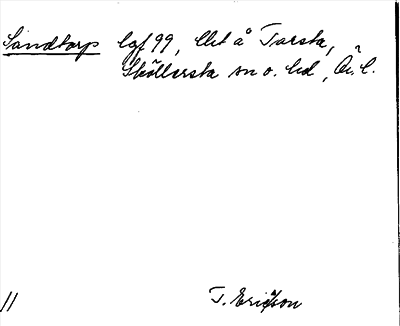 Sandtorp lgf 99, Ukt å Tarsta,
Sköllersta sn o. hd, Ör. l.
T. Ericsson
11